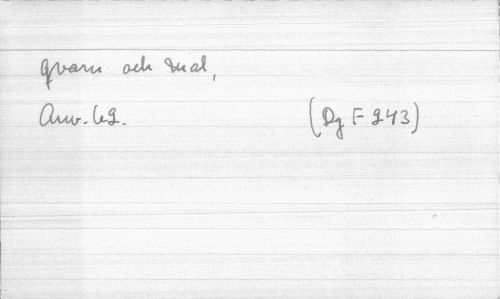 qvarn och mal,
Anv. 62. (Dg F 243)